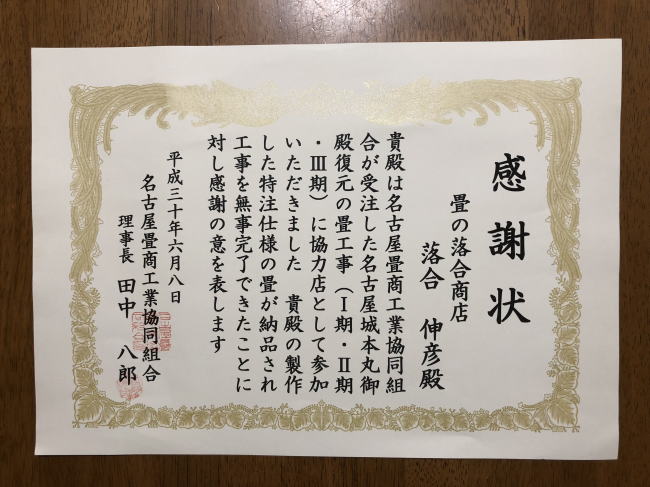 感謝状
畳の落合商店
落合 伸彦殿
貴殿は名古屋畳商工業協同組
合が受注した名古屋城本丸御
殿復元の畳工事(Ⅰ期・Ⅱ期
・Ⅲ期)に協力店として参加
いただきました 貴殿の製作
した特注仕様の畳が納品され
工事を無事完了できたことに
対し感謝の意を表します
平成三十年六月八日
名古屋畳商工業協同組合
理事長 田中 八郎